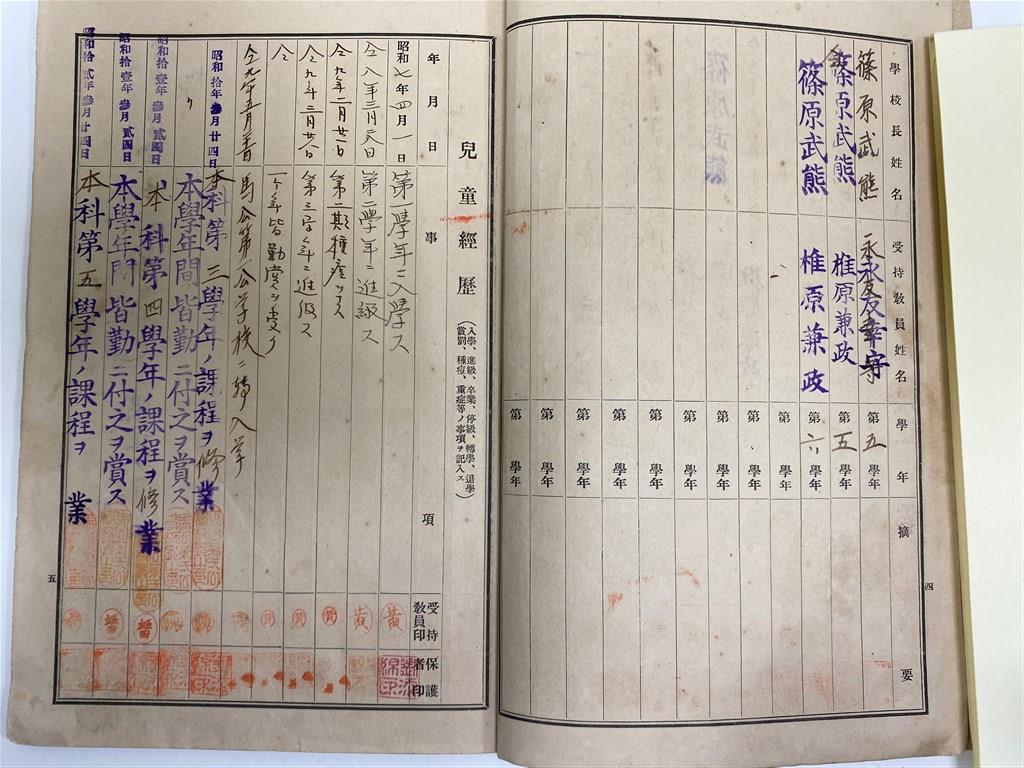 學校長姓名 受持教員姓名 學年 摘要
篠原武熊 永友幸守 第五學年
仝 篠原武熊 椎原兼政 第五學年
篠原武熊 椎原兼政 第六學年
第 學年
第 學年
第 學年
第 學年
第 學年
第 學年
第 學年
第 學年
第 學年
四
兒童經歷
(入學、進級、卒業、停級、轉學、退學
賞罰、種痘、重症等ノ事項ヲ記入ス)
年月日 事項 受持教員印 保護者印
昭和七年四月一日 第一學年ニ入學ス 黃
仝八年三月 日 第二學年ニ進級ス 黃
仝九年二月廿一日 第二期種痘
仝九年三月 日 第三學年ニ進級ス
仝 一ヶ年皆勤賞ヲ受ク
仝九年五月 馬公第一公学校ニ轉入学
昭和拾年參月廿四日 本科第三學年ノ課程ヲ修業
〃 本學年間皆勤ニ付之ヲ賞ス
昭和拾壹年參月貳四日 本科第四學年ノ課程ヲ修業
昭和拾壹年參月貳四日 本學年間皆勤ニ付之ヲ賞ス
昭和拾貳年參月廿四日 本科第五學年ノ課程ヲ 業
五